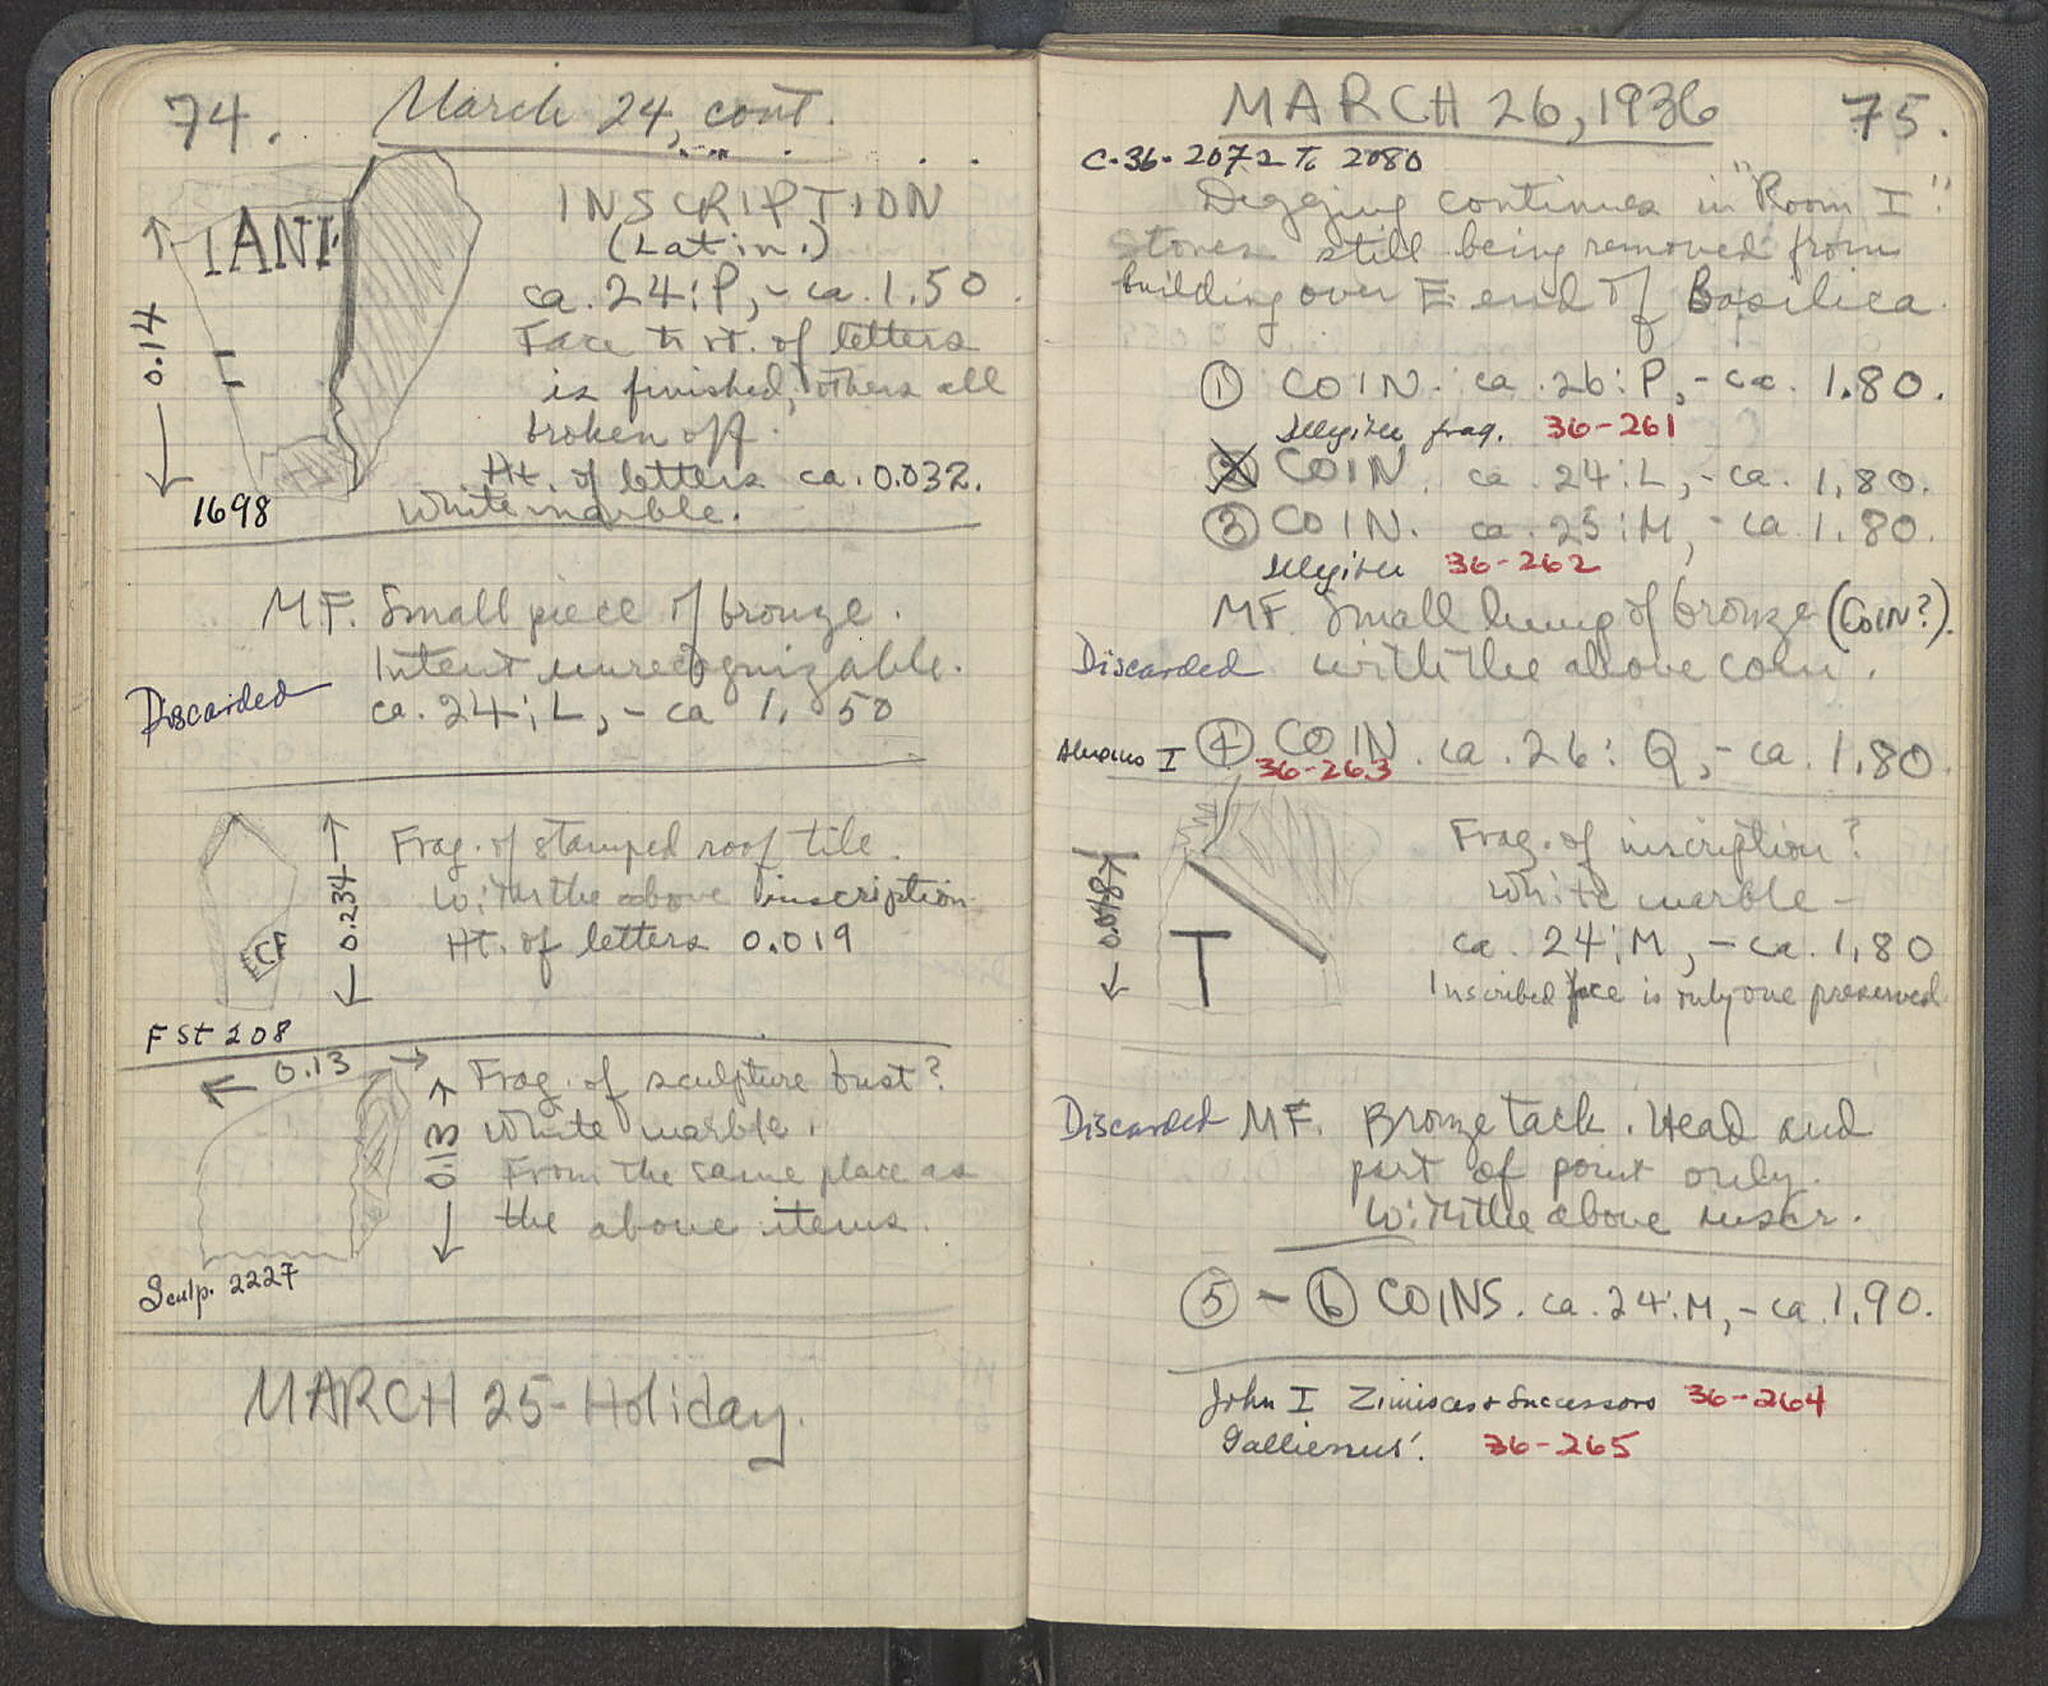 74. March 24, cont.
IANI
0.14
INSCRIPTION
(Latin.)
ca. 24:P, - ca. 1.50.
Face to rt. of letters
is finished; others all
broken off.
Ht. of letters ca. 0.032.
White marble.
1698
MF. Small piece of bronze.
Intent unrecognizable.
ca. 24:L, - ca 1.50
Discarded
Frag. of stamped roof tile.
With the above inscription.
Ht. of letters 0.019
CF
0.234
FSt 208
0.13
Frag. of sculpture bust?
White marble.
From the same place as
the above items.
0.113
Sculp. 2227
MARCH 25 - Holiday.
MARCH 26, 1936 75.
C-36-2072 To 2080
Digging continues in "Room I".
Stones still being removed from
building over E. end of Basilica.
① COIN. ca. 26:P, - ca. 1.80.
Illegible frag. 36-261
② COIN. ca 24:L, - ca. 1.80.
③ COIN. ca. 25:M, - ca. 1.80.
Illegible 36-262
MF. Small lump of bronze (COIN?).
Discarded with the above coin.
I ④ COIN. ca. 26:Q, - ca. 1.80.
36-263
Frag. of inscription?
White marble -
ca. 24:M, - ca. 1.80
Inscribed face is only one preserved
T
Discarded MF. Bronze tack. Head and
part of point only.
With the above inscr.
⑤ - ⑥ COINS. ca. 24:M, - ca. 1.90.
John I Zimisces + Successors 36-264
Gallienus. 36-265